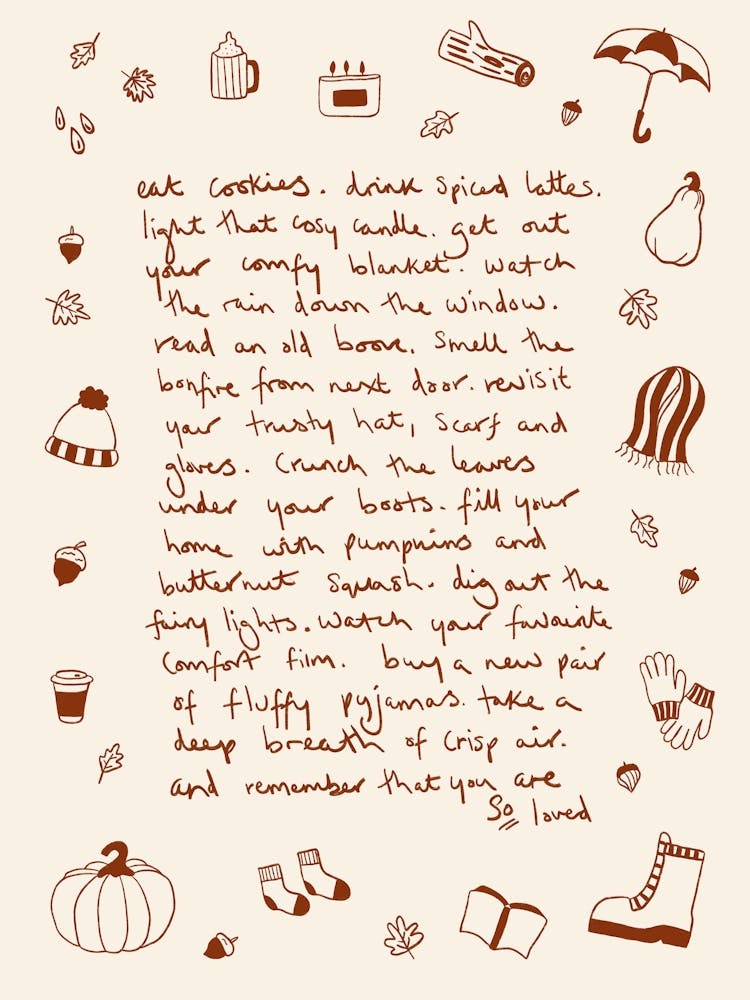 eat cookies. drink spiced lattes.
light that cosy candle. get out
your comfy blanket. watch
the rain down the window.
read an old book. smell the
bonfire from next door. revisit
your trusty hat, scarf and
gloves. crunch the leaves
under your boots. fill your
home with pumpkins and
butternut squash. dig out the
fairy lights. watch your favourite
comfort film. buy a new pair
of fluffy pyjamas. take a
deep breath of crisp air.
and remember that you are
so loved